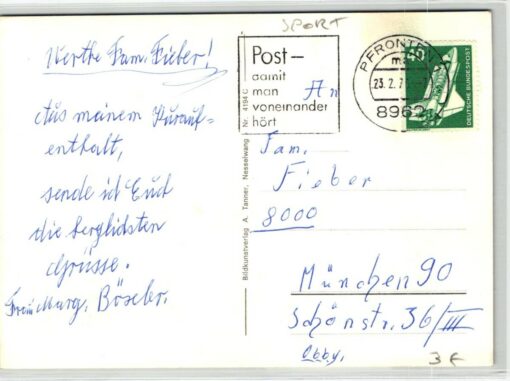 SPORT
Werthe Fam. Fieber!
Aus meinem Kurauf=
enthalt,
sende ich Euch
die herzlichsten
Grüsse.
Frau Marg. Böseler.
Post –
damit
man
voneinander
hört
An
PFRONTEN
23.2.7
8962
DEUTSCHE BUNDESPOST
Bildkunstverlag A. Tanner, Nesselwang Nr. 4194 C
Fam.
Fieber
8000
München 90
Schönstr. 36/III
Obby.
3 €